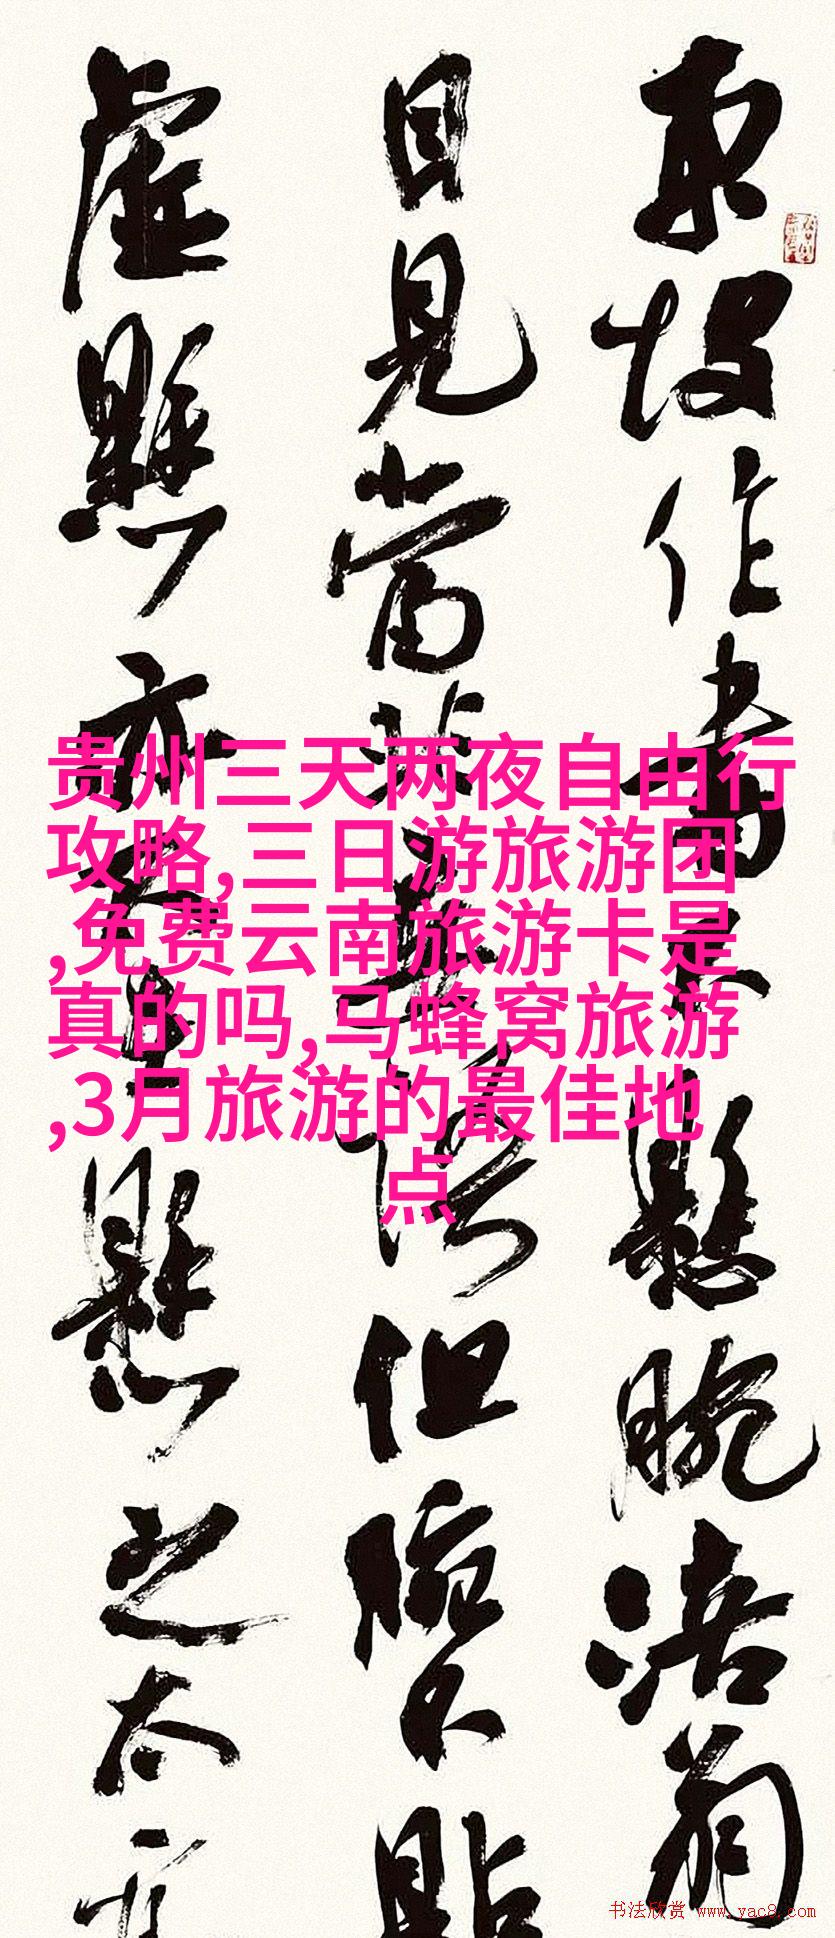 東坡作書不懸腕涪翁
目見當非但腕不貼
虛懸亦不懸之太
贵州三天两夜自由行
攻略,三日游旅游团
,免费云南旅游卡是
真的吗,马蜂窝旅游
,3月旅游的最佳地
点
书法欣赏 www.yac8.com